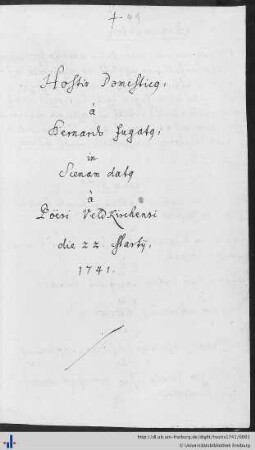 Hostis Domesticq,
à
Bernardo fugatq,
in
Scenam datq
à
Poësi Veldkirchensi
die 22 Martij
1741.
http://dl.ub.uni-freiburg.de/diglit/hostis1741/0001
© Universitätsbibliothek Freiburg